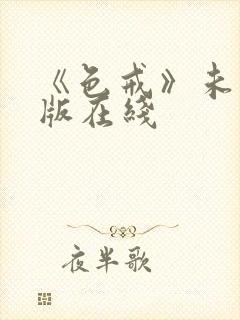 《色戒》未
版在綫
夜半歌